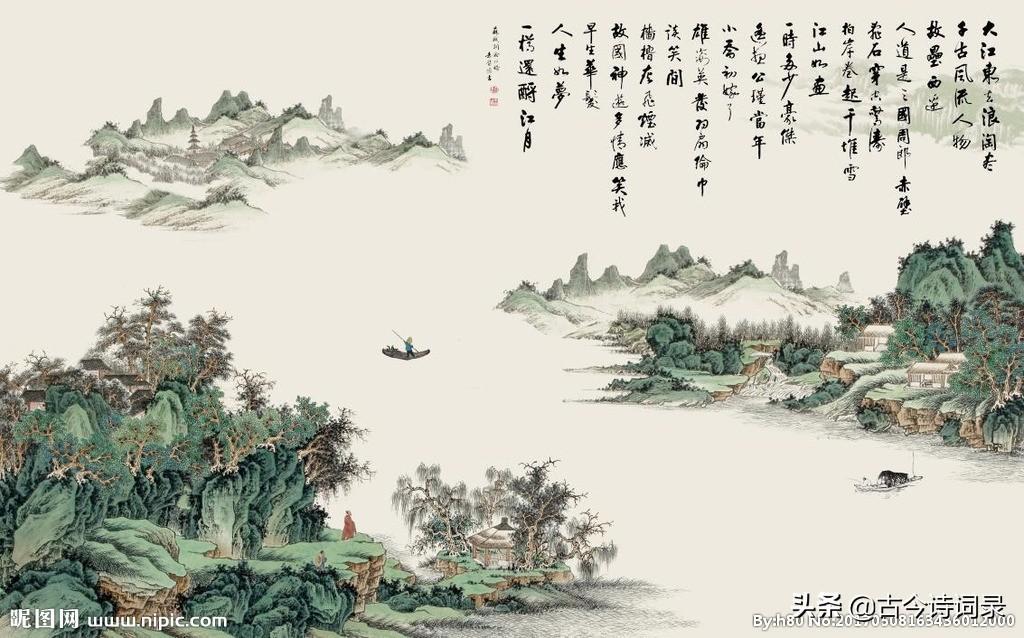 大江東去浪淘尽
千古风流人物
故壘西邊
人道是三國周郎赤壁
乱石穿空驚濤
拍岸卷起千堆雪
江山如畫
一時多少豪傑
遥想公瑾當年
小喬初嫁了
雄姿英發羽扇綸巾
談笑間
檣櫓灰飛煙滅
故國神遊多情應笑我
早生華髮
人生如夢
一樽還酹江月
昵图网 www.nipic.com
头条 @古今诗词录
By:h80 No:20170508163436012000